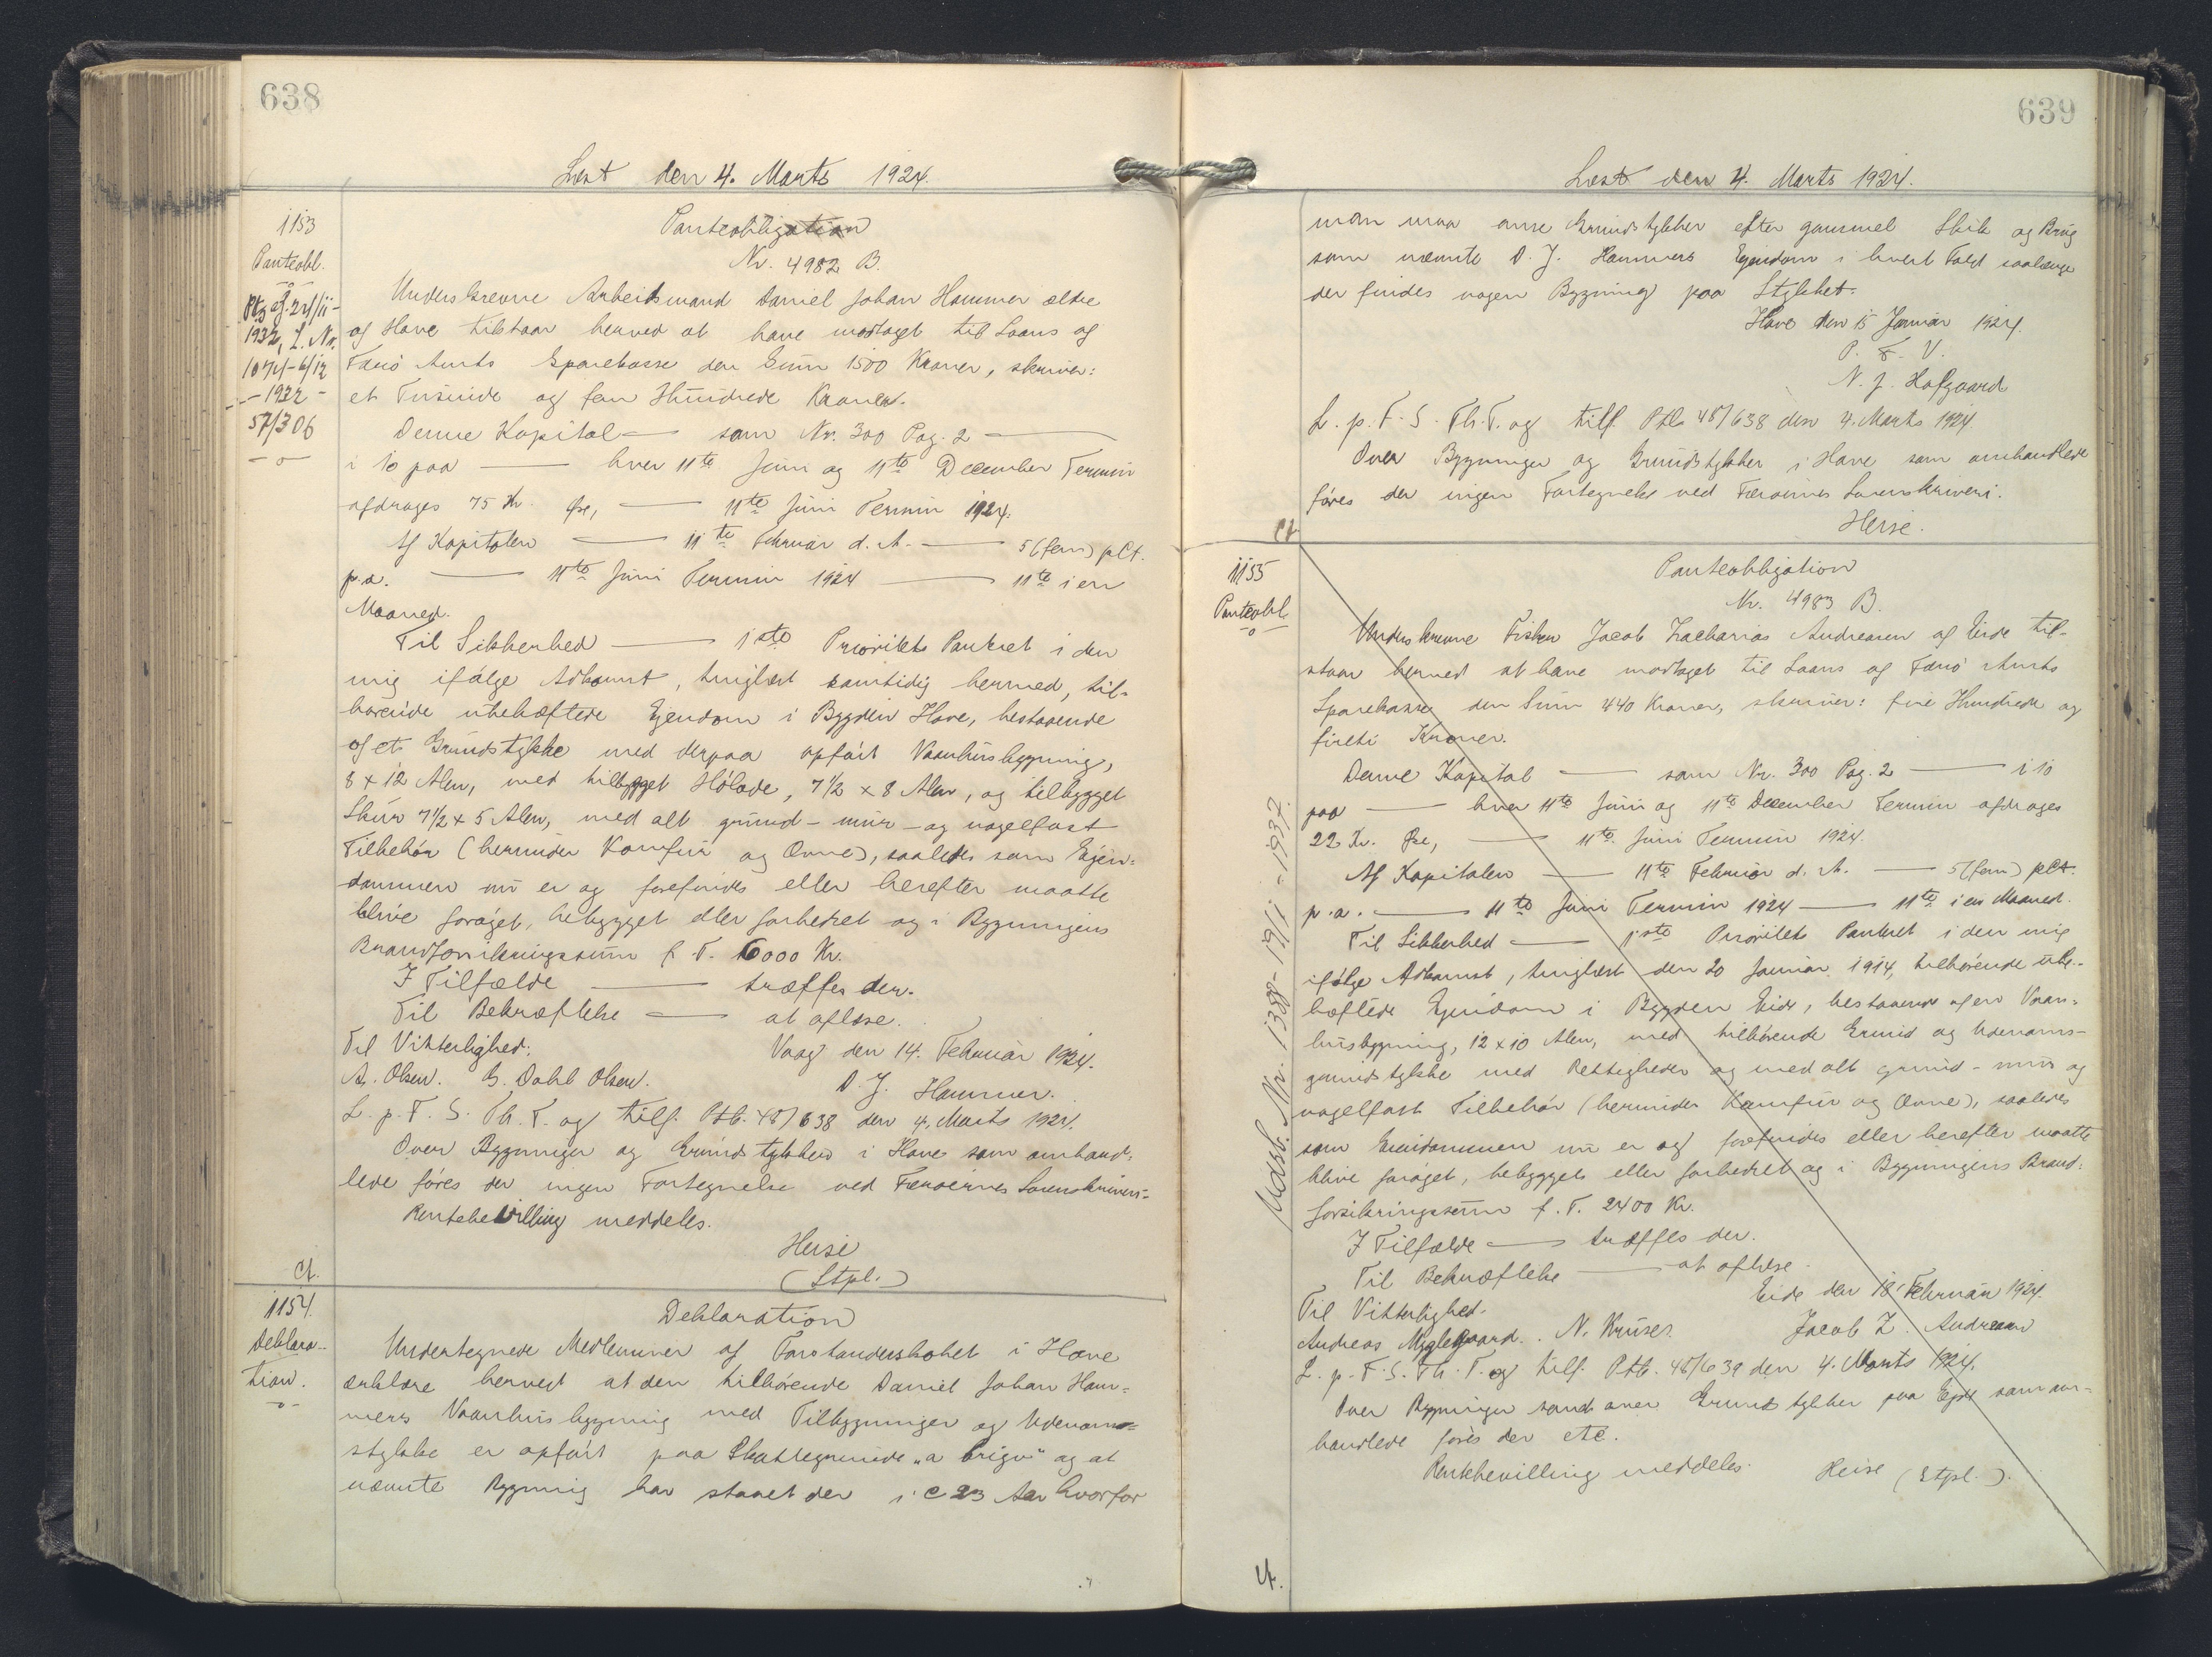 638
Læst den 4. Marts 1924.
1153
Panteobl.
1932, L. Nr.
1074 - 6/12
- 1932 -
57/306
Panteobligation
Nr. 4982 B.
Underskrevne Arbeidsmand Daniel Johan Hammer ældre
af Hove tilstaar herved at have modtaget til Laans af
Færø Amts Sparekasse den Sum 1500 Kroner, skriver:
et Tusinde og fem Hundrede Kroner.
Denne Kapital — som Nr. 300 Pag. 2 —
i 10 paa — hver 11te Juni og 11te December Termin
afdrages 75 Kr. Øre, — 11te Juni Termin 1924.
Af Kapitalen — 11te Februar d. A. — 5 (fem) pCt.
p.a. — 11te Juni Termin 1924 — 11te i en
Maaned.
Til Sikkerhed — 1ste Prioritets Panteret i den
mig ifølge Adkomst, tinglæst samtidig hermed, til-
hørende ubehæftede Ejendom i Bygden Hove, bestaaende
af et Grundstykke med derpaa opført Vaanhusbygning,
8 x 12 Alen, med tilbygget Hølade, 7 1/2 x 8 Alen, og tilbygget
Skur 7 1/2 x 5 Alen, med alt grund- mur- og nagelfast
Tilbehør (herunder Komfur og Ovne), saaledes som Ejen-
dommen nu er og forefindes eller herefter maatte
blive forøget, bebygget eller forbedret og i Bygningens
Brandforsikringssum f. T. 6000 Kr.
I Tilfælde — træffes der.
Til Bekræftelse — at aflæse.
Til Vitterlighed: Vaag den 14. Februar 1924.
A. Olsen. G. Dahl Olsen. D. J. Hammer.
L. p. F. S. Th. T. og tilf. Ptb. 48/638 den 4. Marts 1924.
Over Bygninger og Grundstykker i Hove som omhand-
lede føres der ingen Fortegnelse ved Færøernes Sorenskriveri-
Rentebevilling meddeles.
Heise
(Stpl.)
Cf.
1154.
Deklara-
tion.
Deklaration
Undertegnede Medlemmer af Forstanderskabet i Hove
erklære herved at den tilhørende Daniel Johan Ham-
mers Vaanhusbygning med Tilbygninger og Udenoms-
stykke er opført paa Skattegrunde "a brigv" og at
nævnte Bygning har staaet der i c 23 Aar hvorfor
639
Læst den 4. Marts 1924.
man maa anse Grundstykket efter gammel Skik og Brug
som nævnte D. J. Hammers Ejendom i hvert Fald saalænge
der findes nogen Bygning paa Stykket.
Hove den 15 Januar 1924.
P. F. V.
N. J. Hofgaard
L. p. F. S. Th. T. og tilf. Ptb 48/638 den 4. Marts 1924
Over Bygninger og Grundstykker i Hove som omhandlede
føres der ingen Fortegnelse ved Færøernes Sorenskriveri.
Heise.
Cf.
1155
Panteobl.
Udsl. Nr. 1388 - 19/1 - 1937.
Panteobligation
Nr. 4983 B.
Underskrevne Fisker Jacob Zacharias Andreasen af Eide til-
staar herved at have modtaget til Laans af Færø Amts
Sparekasse den Sum 440 Kroner, skriver: fire Hundrede og
fireti Kroner.
Denne Kapital — som Nr. 300 Pag. 2 — i 10
paa — hver 11te Juni og 11te December Termin afdrages
22 Kr. Øre, — 11te Juni Termin 1924.
Af Kapitalen — 11te Februar d. A. — 5 (fem) pCt.
p.a. — 11te Juni Termin 1924 — 11te i en Maaned.
Til Sikkerhed — 1ste Prioritets Panteret i den mig
ifølge Adkomst, tinglæst den 20 Januar 1914, tilhørende ube-
hæftede Ejendom i Bygden Eide, bestaaende af en Vaan-
husbygning, 12 x 10 Alen, med tilhørende Grund og Udenoms-
grundstykke med Rettigheder og med alt grund- mur og
nagelfast Tilbehør (herunder Komfur og Ovne), saaledes
som Ejendommen nu er og forefindes eller herefter maatte
blive forøget, bebygget eller forbedret og i Bygningens Brand-
forsikringssum f. T. 2400 Kr.
I Tilfælde — træffes der.
Til Bekræftelse — at aflæse.
Eide den 18 Februar 1924.
Til Vitterlighed.
Andreas Myglegaard. N. Kruse. Jacob Z. Andreasen
L. p. F. S. Th. T. og tilf. Ptb. 48/639 den 4. Marts 1924.
Over Bygninger samt over Grundstykker paa Ejde som om-
handlede føres der etc.
Rentebevilling meddeles. Heise (Stpl.).
Cf.